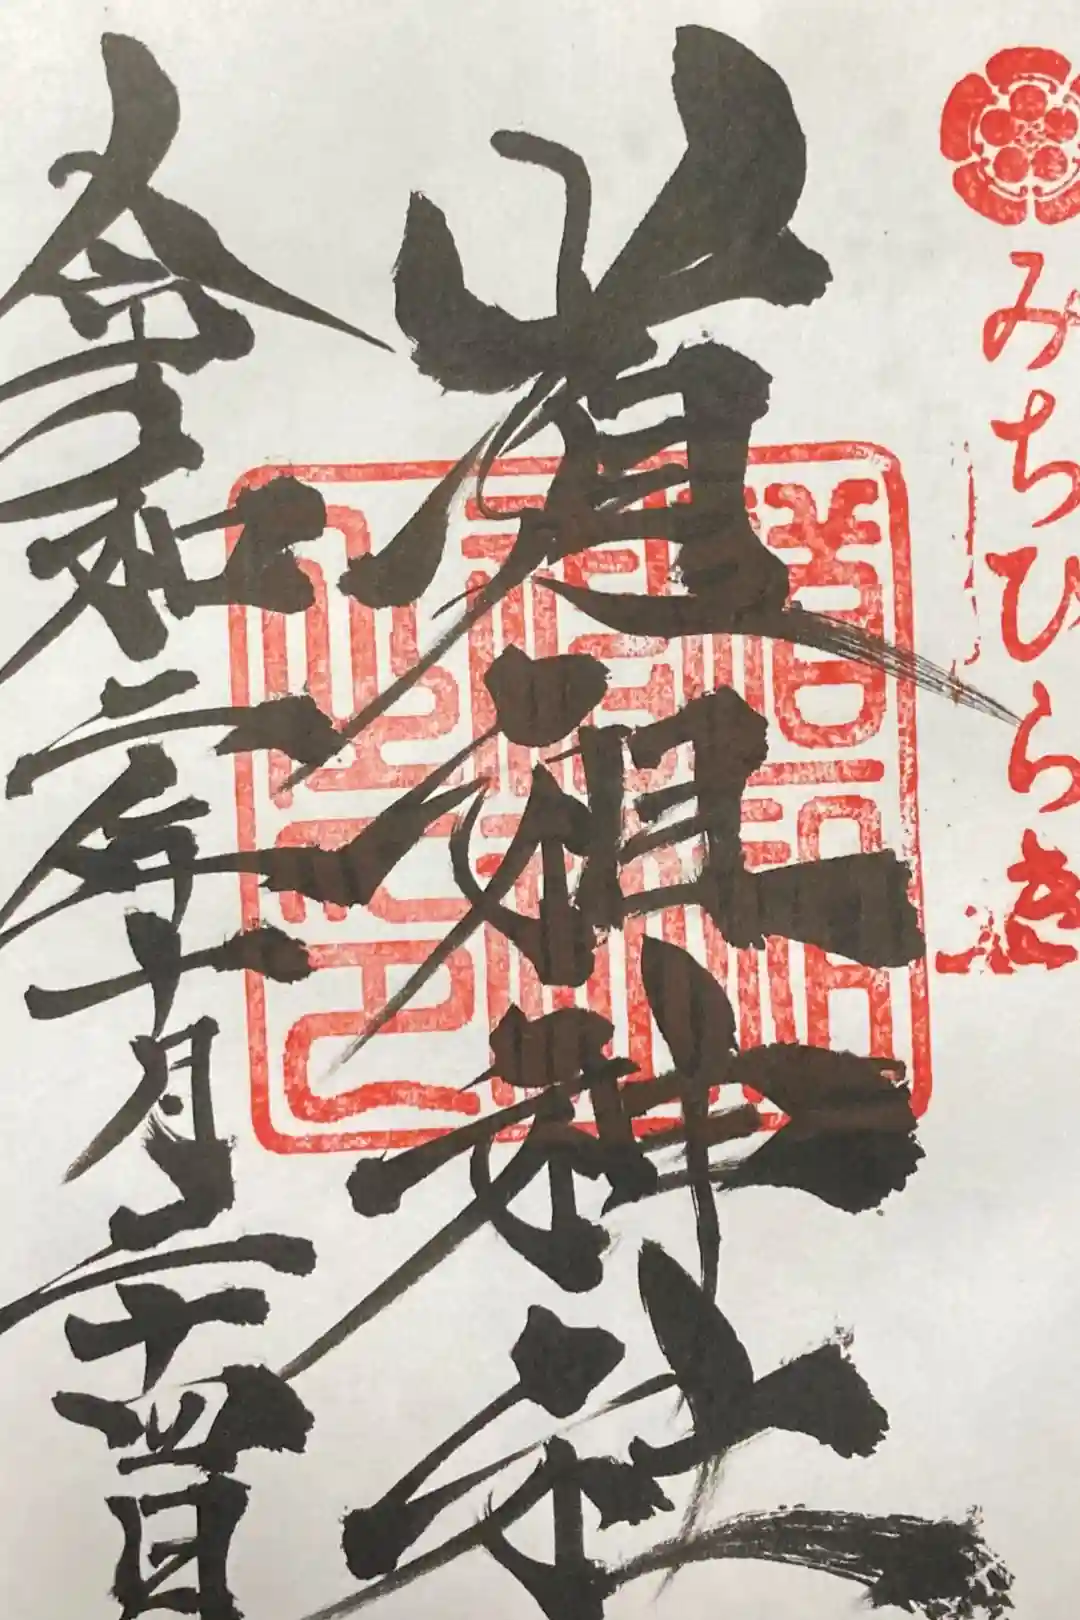 みちひらき
道祖神社
令和二年十月二十四日